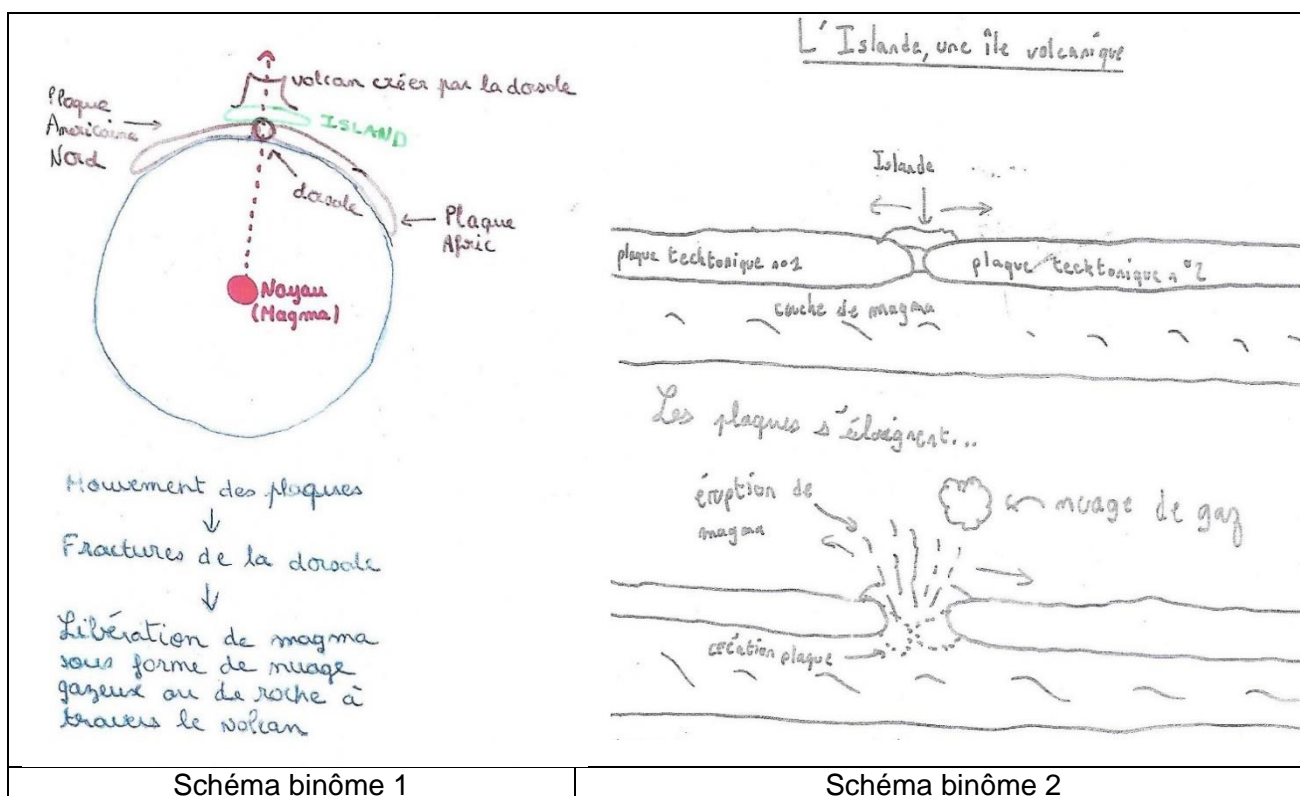 volcan créer par la dorsale
Plaque
Americaine
Nord
ISLAND
dorsale
Plaque
Afric
Noyau
(Magma)
Mouvement des plaques
Fractures de la dorsale
Libération de magma
sous forme de nuage
gazeux ou de roche à
travers le volcan
Schéma binôme 1
L'Islande, une île volcanique
Islande
plaque tecktonique n°1
plaque tecktonique n°2
couche de magma
Les plaques s'éloignent...
éruption de
magma
nuage de gaz
création plaque
Schéma binôme 2